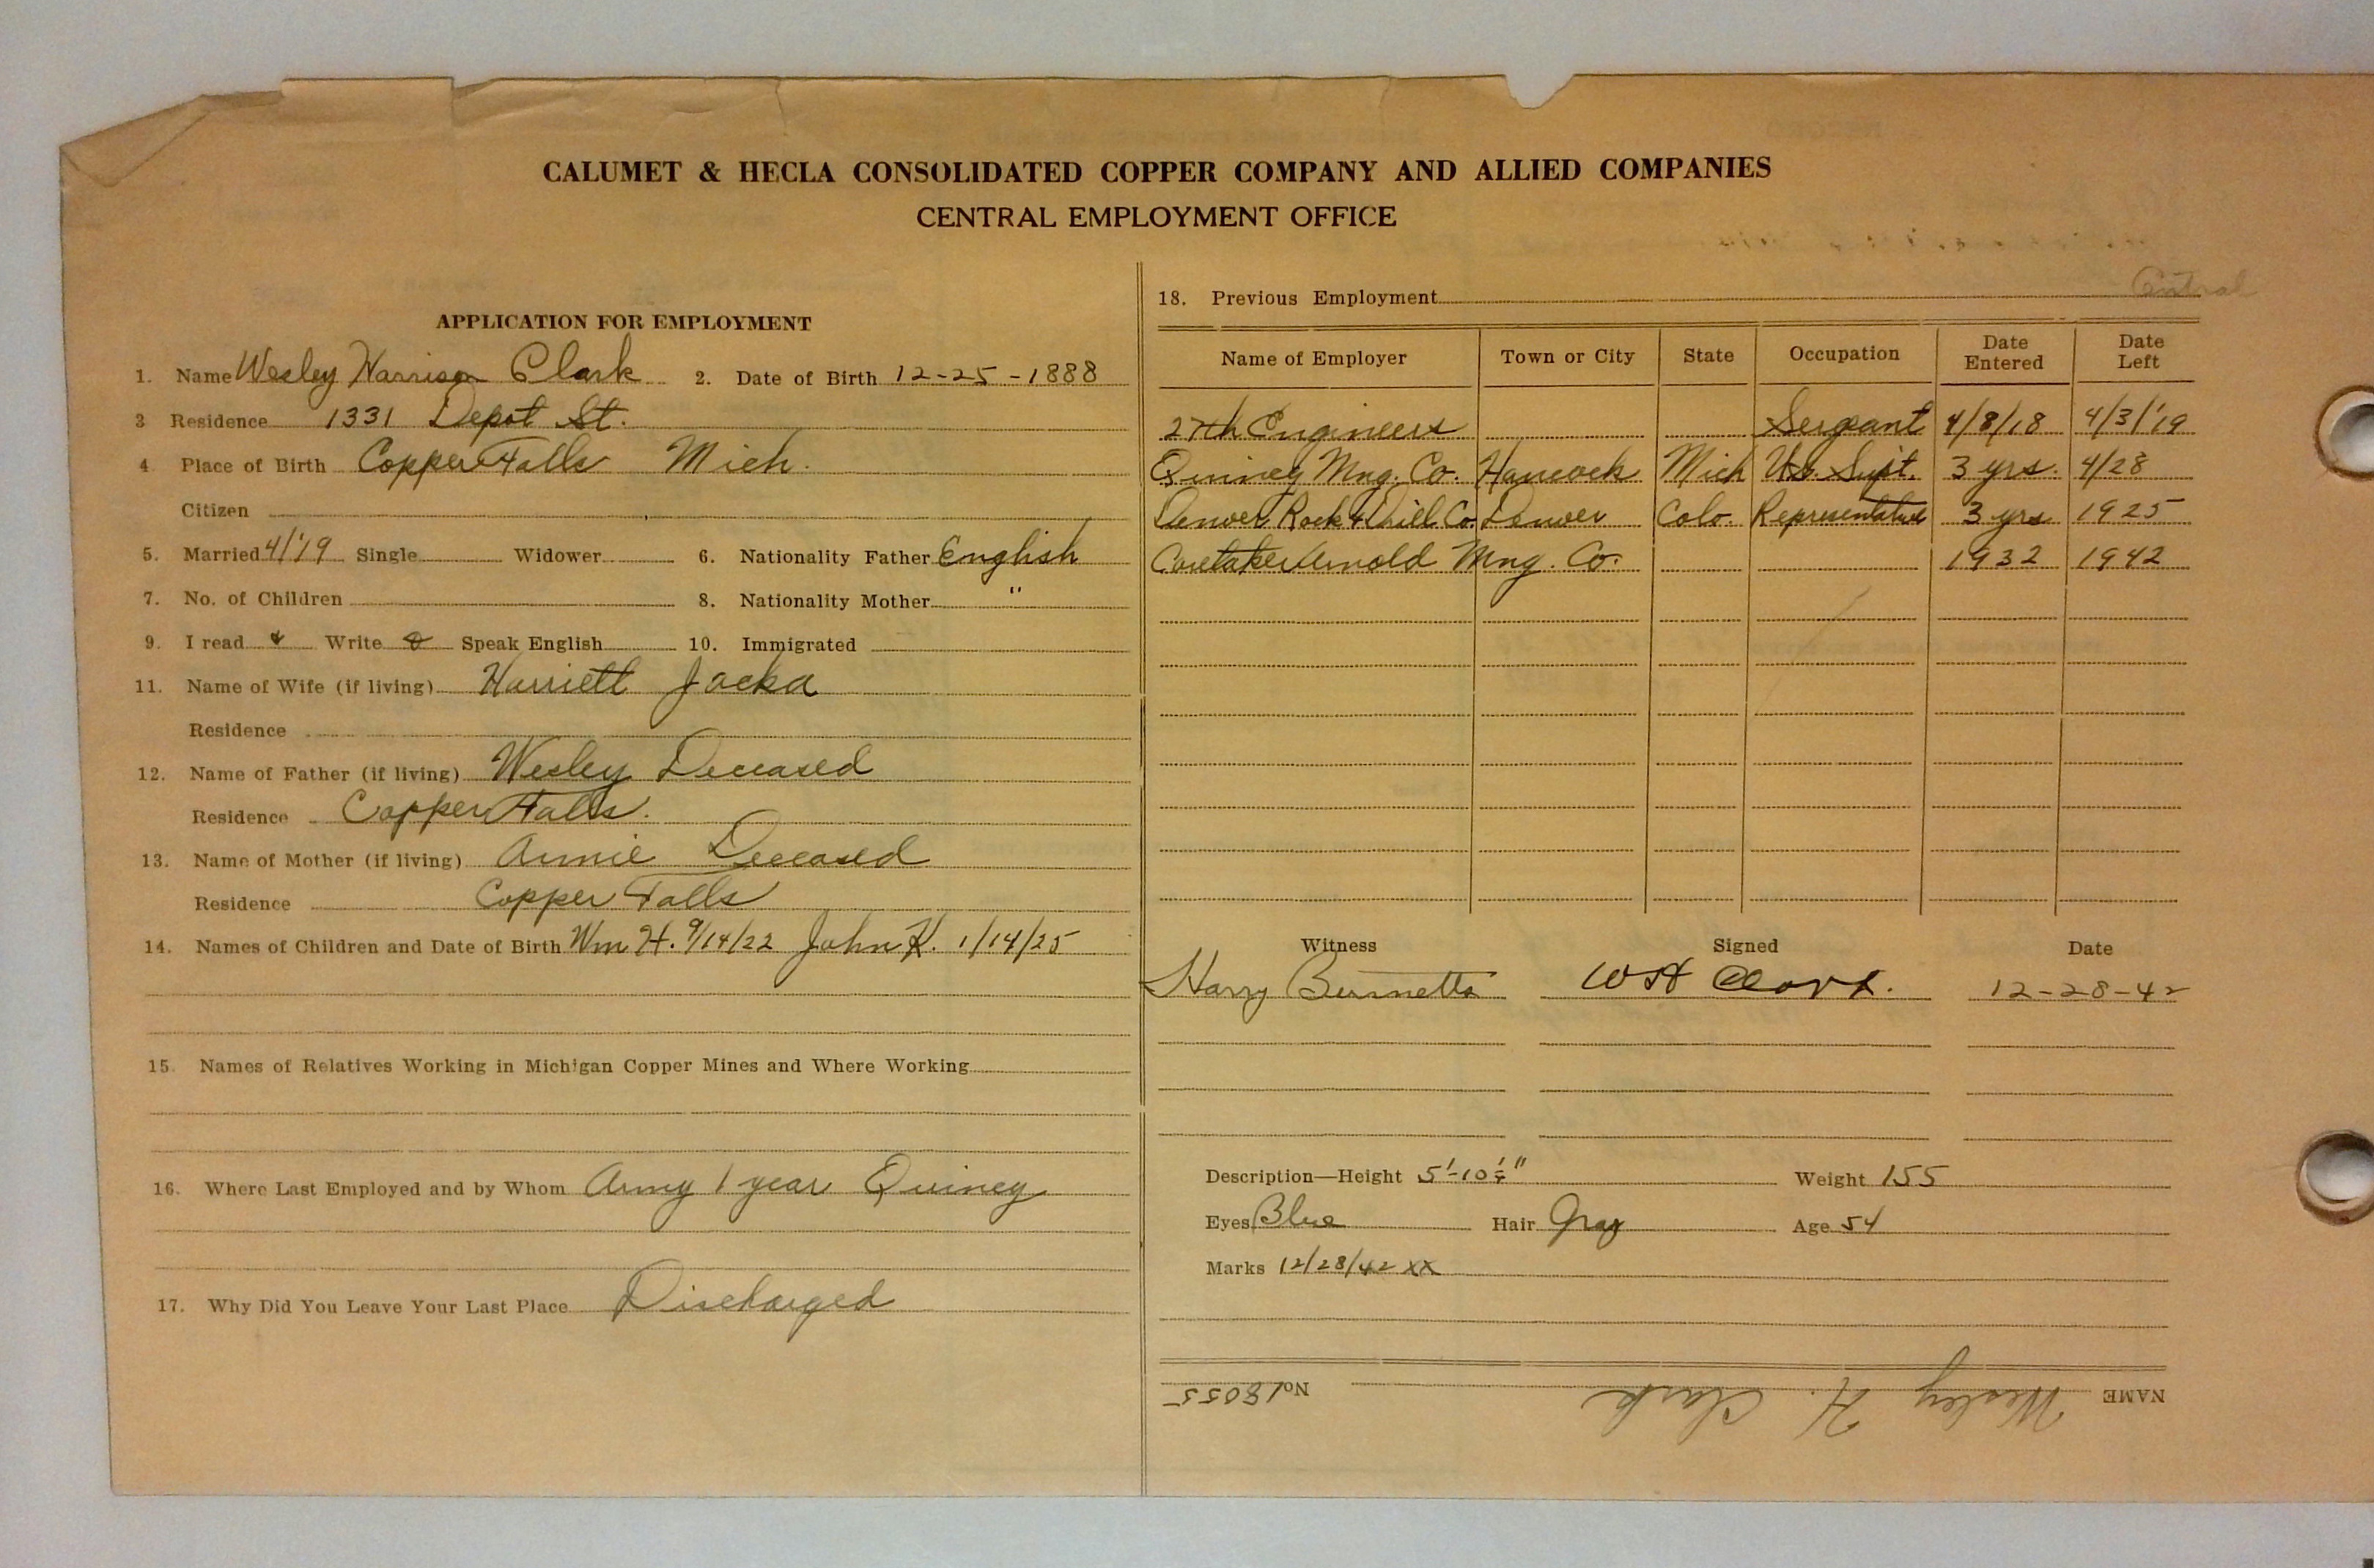 CALUMET & HECLA CONSOLIDATED COPPER COMPANY AND ALLIED COMPANIES
CENTRAL EMPLOYMENT OFFICE
APPLICATION FOR EMPLOYMENT
1. Name Wesley Harrison Clark 2. Date of Birth 12-25-1888
3 Residence 1331 Depot St.
4 Place of Birth Copper Falls Mich.
Citizen
5. Married 4/'19 Single Widower 6. Nationality Father English
7. No. of Children 8. Nationality Mother "
9. I read Write Speak English 10. Immigrated
11. Name of Wife (if living) Harriett Jacka
Residence
12. Name of Father (if living) Wesley Deceased
Residence Copper Falls.
13. Name of Mother (if living) Annie Deceased
Residence Copper Falls
14. Names of Children and Date of Birth Wm H. 9/14/22 John K. 1/14/25
15. Names of Relatives Working in Michigan Copper Mines and Where Working
16. Where Last Employed and by Whom Army 1 year Quincy
17. Why Did You Leave Your Last Place Discharged
18. Previous Employment Central
Name of Employer Town or City State Occupation Date Entered Date Left
27th Engineers Sergeant 4/8/18 4/3/'19
Quincy Mng. Co. Hancock Mich Supt. 3 yrs. 4/28
Denver Rock Drill Co. Denver Colo. Representative 3 yrs 1925
Caretaker Arnold Mng. Co. 1932 1942
Witness Signed Date
Harry WH Clark. 12-28-42
Description—Height 5'-10 Weight 155
Eyes Blue Hair Gray Age 54
Marks 12/28/42 XX
NAME Wesley H. Clark No. 18055